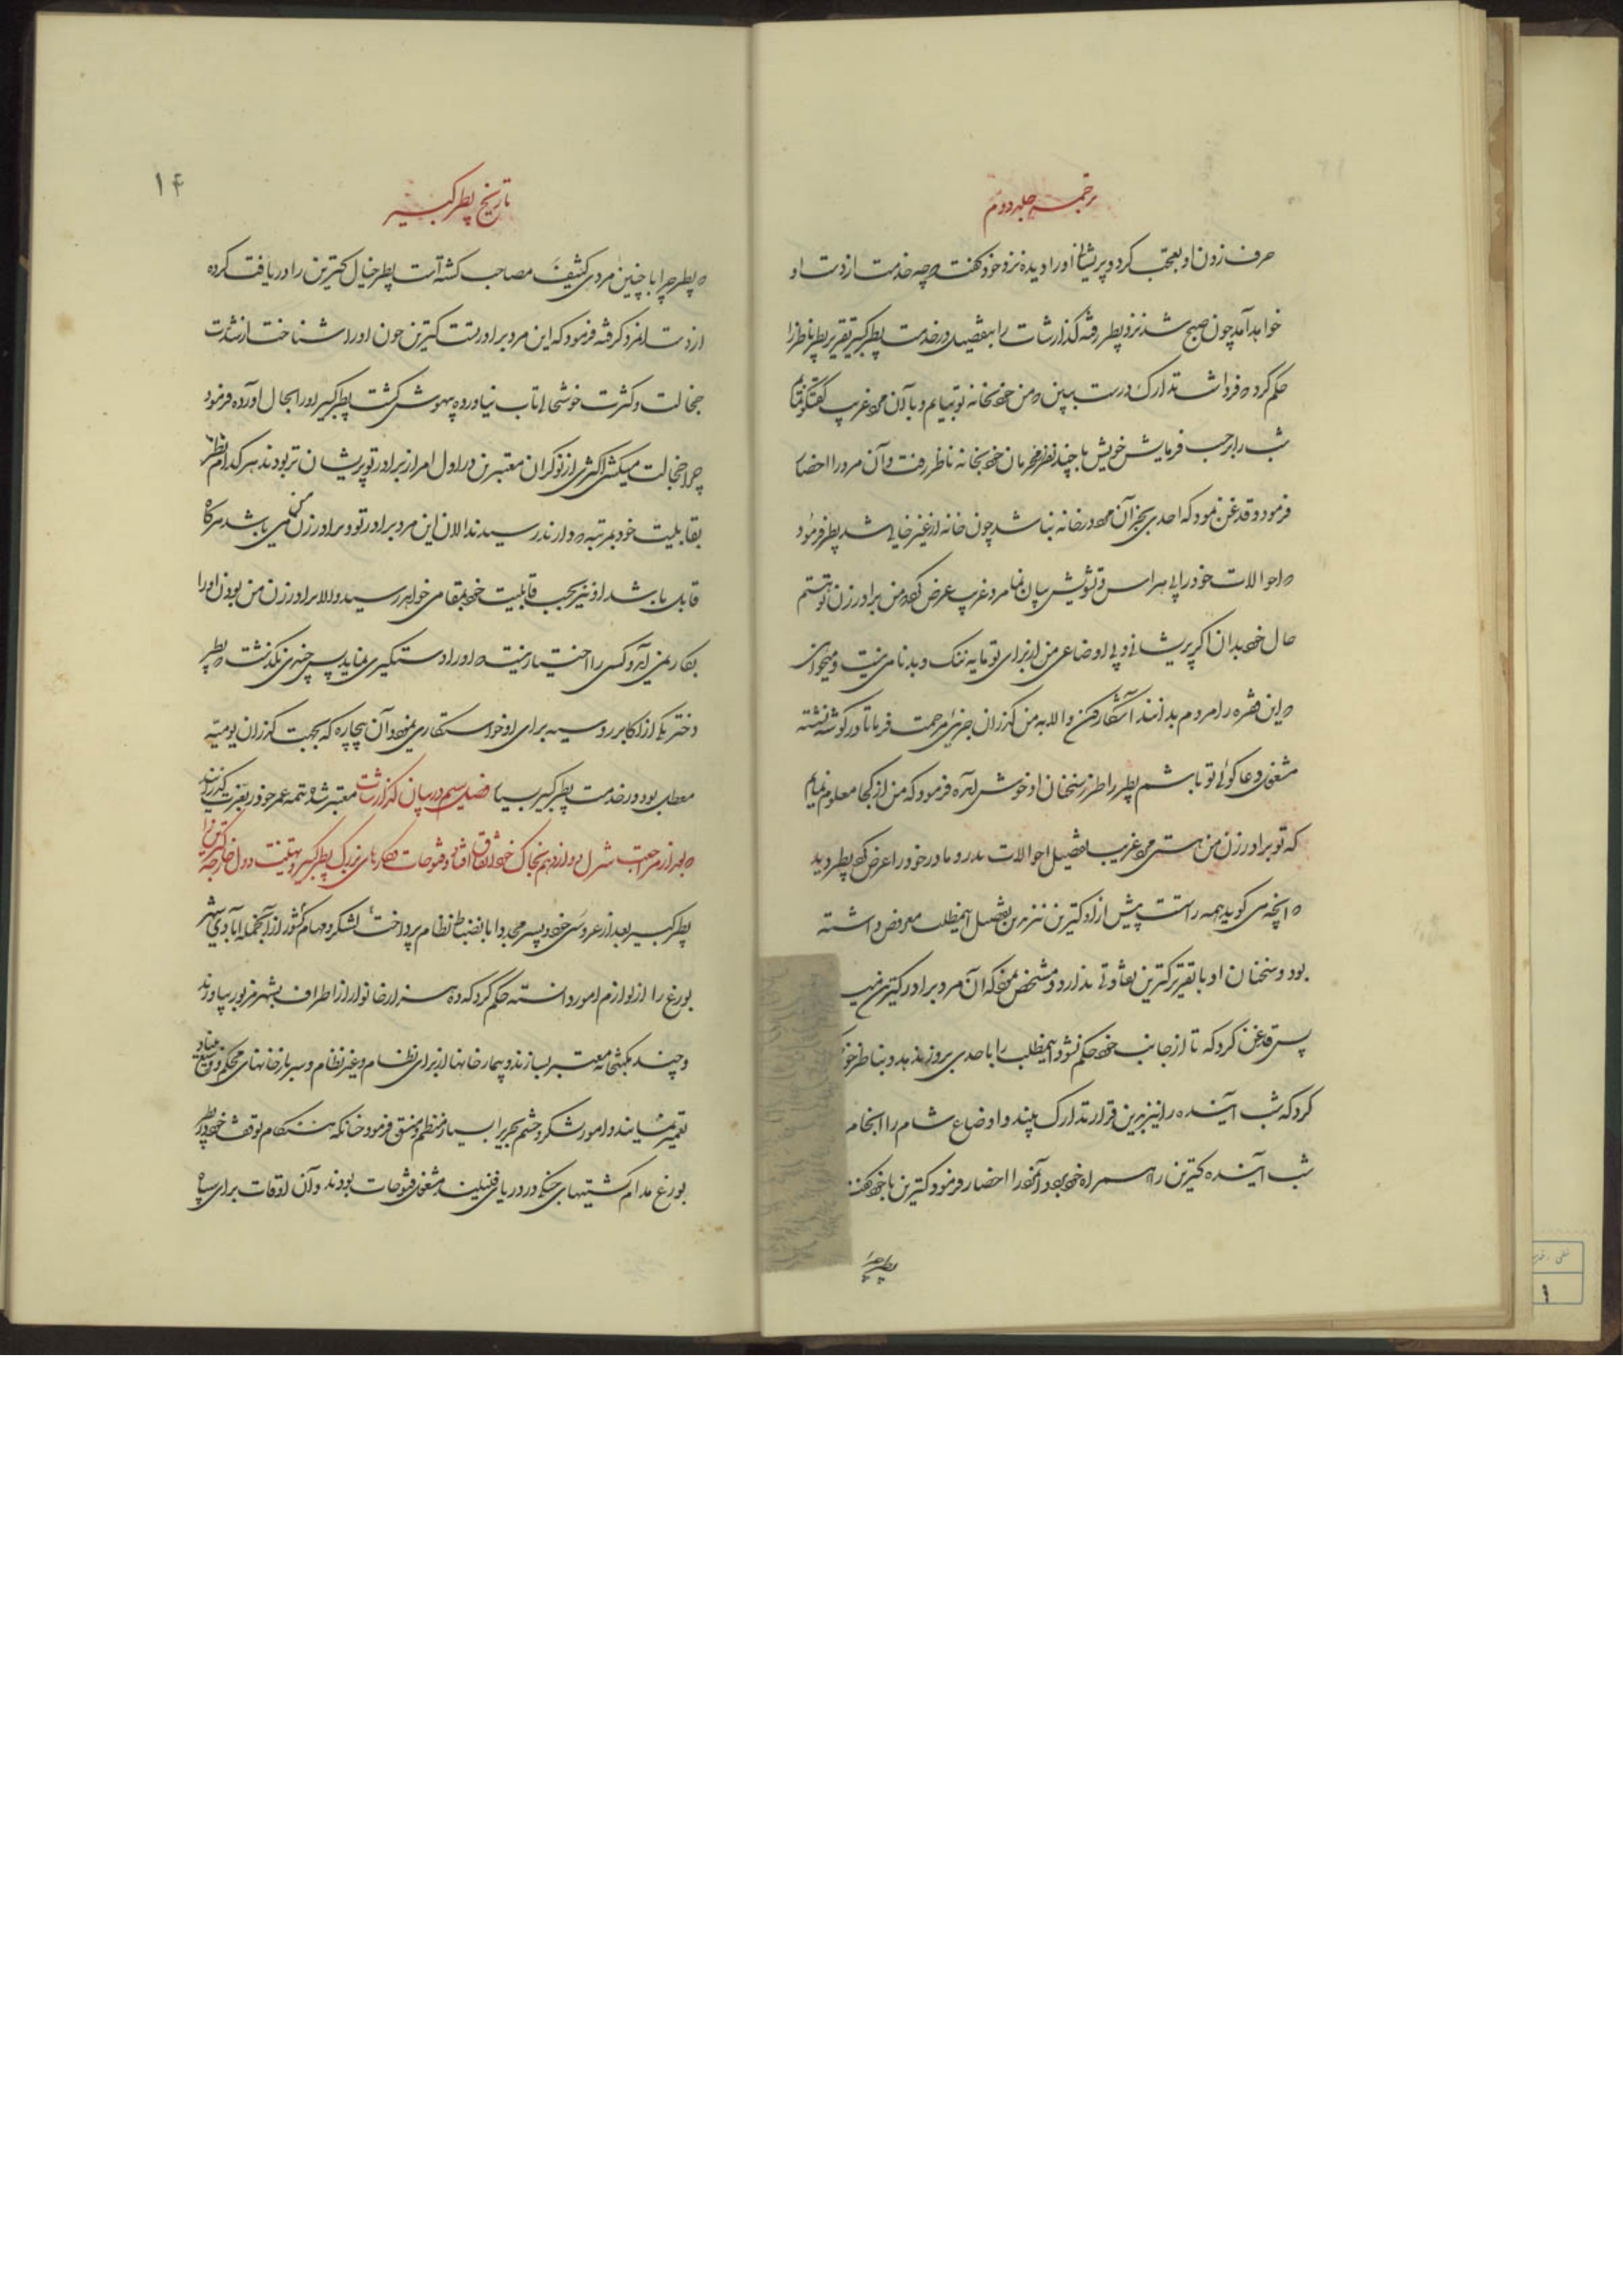 ترجمه جلد دوم
حرف زدن او تعجب کرد و پریشانی او را دیده نزد خود گفت که چه خدمت از دست او
خواهد آمد چون صبح شد نزد پطر رفته گذارشات را بتفصیل در خدمت پطر کبیر تقریر پطر ناظر را
حکم کرد که فردا شب تدارک درست ببین که من خود بخانه تو بیایم و با آن مرد غریب گفتگو نمایم
شب را بر حسب فرمایش خویش با چند نفر محرمان خود بخانه ناظر رفت و آن مرد را احضار
فرمود و قدغن نمود که احدی بجز آن مرد در خانه نباشد چون خانه از غیر خالی شد پطر فرمود
که احوالات خود را بی هراس و تشویش بیان نما مرد غریب عرض کرد که من برادر زن تو هستم
حال خود بدان اگر پریشانی و بی اوضاعی من از برای تو مایه ننک و بدنامی نیست و میخواهی
که این فقره را مردم بدانند آشکار کن والا به من گذران جزئی مرحمت فرما تا در گوشه نشسته
مشغول دعا گوئی تو باشم پطر را طرز سخنان او خوش آمده فرمود که من از کجا معلوم نمایم
که تو برادر زن من هستی مرد غریب تفصیل احوالات پدر و مادر خود را عرض کرد پطر دید
که آنچه می گوید همه راست پیش از او کترین نیز بدین تفصیل اینمطلب معروض داشته
بود و سخنان او با تقریر کترین تفاوتی ندارد و مشخص نمود که آن مرد برادر کترین
پس قدغن کرد که تا از جانب خود حکم نشود اینمطلب را با احدی بروز ندهد و بناظر خود
کرد که شب آینده را نیز بدین قرار تدارک ببیند و اوضاع شام را انجام
شب آینده کترین را همراه خود برد و آنمرد را احضار فرمود کترین با خود گفت
پطر چرا
تاریخ پطر کبیر
۱۴
که پطر چرا با چنین مردی کثیف مصاحب کشته است پطر خیال کترین را دریافت کرده
از دست آنمرد کرفته فرمود که این مرد برادر تست کترین چون او را شناخت از شدت
خجالت و کثرت خوشحالی تاب نیاورده بیهوش کشت پطر کبیر او را بحال آورده فرمود
چرا خجالت میکشی اکثری از نوکران معتبر من در اول امر از برادر تو پریشان تر بودند هر کدام نظر
بقابلیت خود بمرتبه که دارند رسیدند الان این مرد برادر تو و برادر زن من می باشد هرگاه
قابل باشد او نیز بحسب قابلیت خود بمقامی خواهد رسید والا برادر زن من بودن او را
بکار نمی آید و کسی را اختیار نیست که او را دستگیری نماید پس چندی نگذشت که پطر
دختر یکی از اکابر روسیه برای او خواستکاری نمود و آن بیچاره که بجهت گذران یومیه
معطل بود در خدمت پطر کبیر بسیار معتبر شد و تتمه عمر خود را بعزت گذرانید فصل سیم در بیان گذارشات
که بعد از مراجعت شرل دوازدهم بخاک خود اتفاق افتاد و فتوحات و کارهای بزرگ پطر کبیر و تهنیت دول خارجه
پطر کبیر بعد از عروسی خود و پسر مجددا بانضباط نظام پرداخت لشکر و مهام کشور از آنجمله آبادی شهر
بورغ را از لوازم امور دانسته حکم کرد که ده هزار خانوار از اطراف بشهر مزبور بیاورند
و چند مکتبخانه معتبر بسازند و بیمارخانها از برای نظام و غیر نظام و سربازخانهای محکم و وسیع بنیاد
تعمیر نمایند و امور لشکر و حشم بحری را بسیار منظم و منسق فرمود خانکه هنگام توقف خود در پطر
بورغ مدام کشتیهای جنگی در دریای فنلیند مشغول فتوحات بودند و آن اوقات برای سپاه